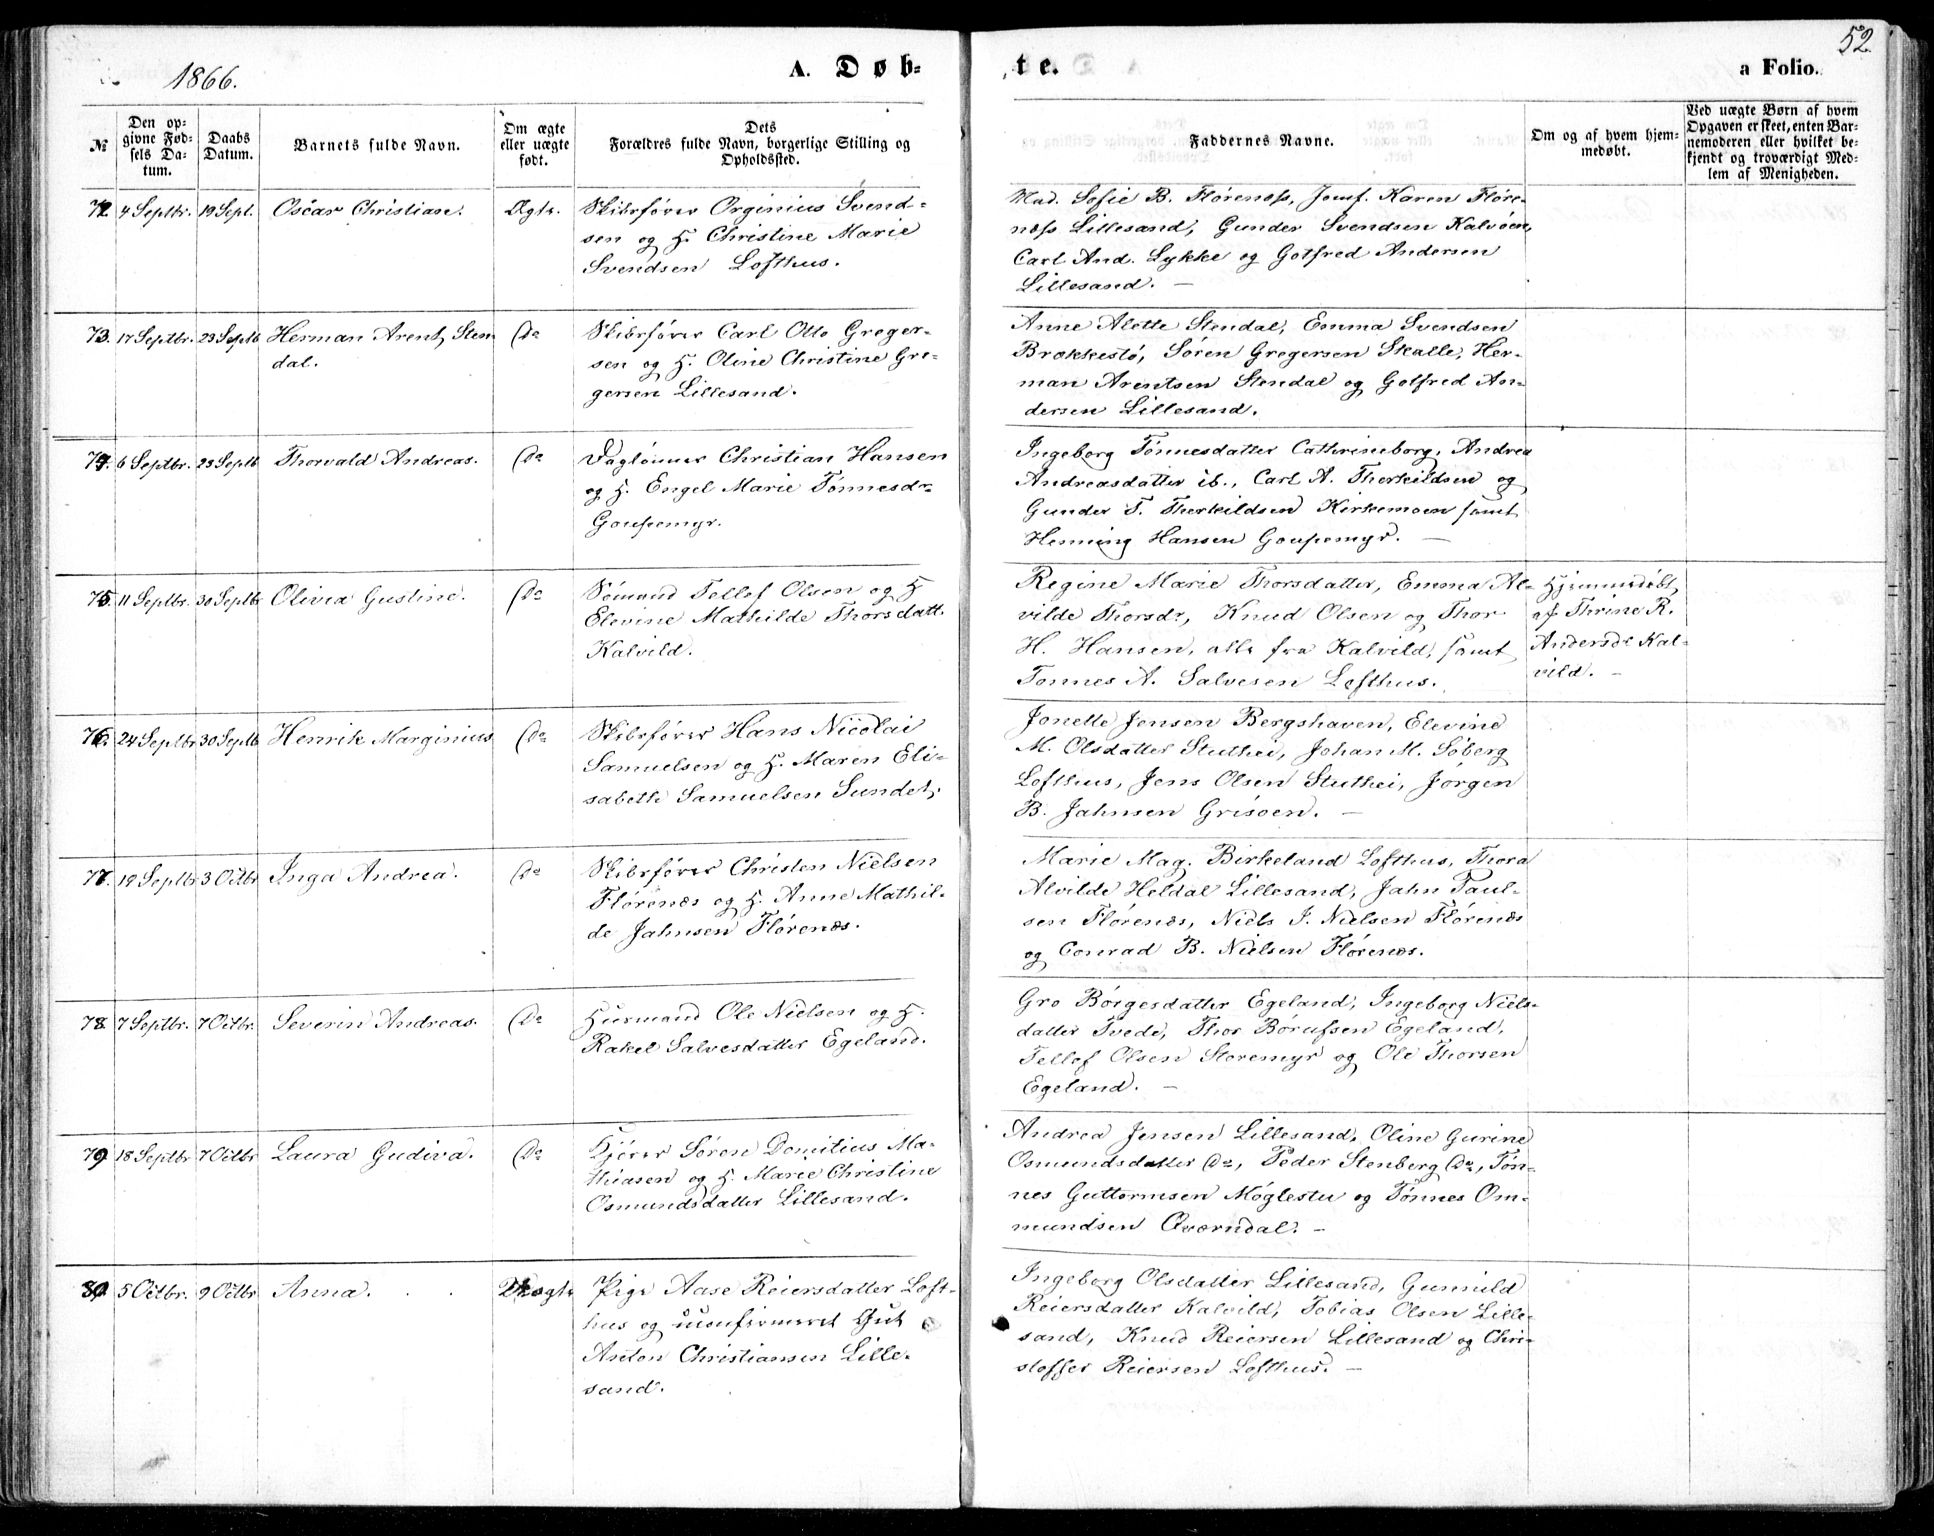 1866.
A. Døb-
te.
52.
a Folio.
№
Den op-
givne Fød-
sels Da-
tum.
Daabs
Datum.
Barnets fulde Navn.
Om ægte
eller uægte
født.
Dets
Forældres fulde Navn, borgerlige Stilling og
Opholdssted.
Faddernes Navne.
Om og af hvem hjem-
medøbt.
Ved uægte Børn af hvem
Opgaven er skeet, enten Bar-
nemoderen eller hvilket be-
kjendt og troværdigt Med-
lem af Menigheden.
72. 4 Septbr. 19 Sept. Oscar Christian. Ægte. Skibsfører Orginius Svend-
sen og H. Christine Marie
Svendsen Lofthus.
Mad. Sofie B. Flørenæss, Jomf. Karen Fløre-
næss Lillesand, Gunder Svendsen Kalvøen,
Carl And. Lykke og Gotfred Andersen
Lillesand. —
73. 17 Septbr. 23 Septb Herman Arent Sten
dal. Do Skibsfører Carl Otto Greger-
sen og H. Oline Christine Gre-
gersen Lillesand.
Anne Alette Stendal, Emma Svendsen
Brækkestø, Søren Gregersen Skalle, Her-
man Arentsen Stendal og Gotfred An-
dersen Lillesand.
74. 6 Septbr. 23 Septb Thorvald Andreas. Do Daglønner Christian Hansen
og H. Engel Marie Tønnesdr
Goupemyr.
Ingeborg Tønnesdatter Cathrineborg, Andrea
Andreasdatter ib., Carl A. Therkildsen og
Gunder T. Therkildsen Kirkemoen samt
Henning Hansen Goupemyr. —
75. 11 Septbr. 30 Septbr Olivia Gustine. Do Sømand Tellef Olsen og H
Elevine Mathilde Thorsdatt.
Kalvild.
Regine Marie Thorsdatter, Emma Al-
vilde Thorsdr, Knud Olsen og Thor
H. Hansen, alle fra Kalvild, samt
Tønnes A. Salvesen Lofthus.
Hjemmedøbt
af Thrine R.
Andersdr Kal-
vild. —
76. 24 Septbr 30 Septb Henrik Marginius Do Skibsfører Hans Nicolai
Samuelsen og H. Maren Eli-
sabeth Samuelsen Sundet.
Jonette Jensen Bergshaven, Elevine
M. Olsdatter Stuthei, Johan M. Søberg
Lofthus, Jens Olsen Stuthei, Jørgen
B. Jahnsen Grisøen. —
77. 19 Septbr 3 Octbr Inga Andrea. Do Skibsfører Christen Nielsen
Flørenæs og H. Anne Mathil-
de Jahnsen Flørenæs.
Marie Mag. Birkeland Lofthus, Thora
Alvilde Heldal Lillesand, Jahn Paul-
sen Flørenæs, Niels J. Nielsen Flørenæs
og Conrad B. Nielsen Flørenæs.
78. 7 Septbr. 7 Octbr. Severin Andreas. Do Huusmand Ole Nielsen og H.
Rakel Salvesdatter Egeland.
Gro Børgesdatter Egeland, Ingeborg Niels-
datter Tvede, Thor Børufsen Egeland,
Tellef Olsen Storemyr og Ole Thorsen
Egeland. —
79 18 Septbr 7 Octbr Laura Gudiva. Do Kjører Søren Domitius Ma-
thiasen og H. Marie Christine
Osmundsdatter Lillesand.
Andrea Jensen Lillesand, Oline Gurine
Osmundsdatter Do, Peder Stenberg Do, Tøn-
nes Guttormsen Møglestu og Tønnes Om-
mundsen Qværndal. —
80. 5 Octbr. 9 Octbr Anna. Uægte Pige Aase Reiersdatter Loft-
hus og uconfirmeret Gut
Anton Christiansen Lille-
sand.
Ingeborg Olsdatter Lillesand, Gunnild
Reiersdatter Kalvild, Tobias Olsen Lille-
sand, Knud Reiersen Lillesand og Chri-
stoffer Reiersen Lofthus. —